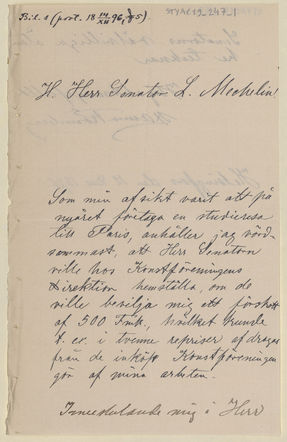 Bil. 1 (prot. 18 14/XII 96, § 5)
STYA[1]9_247_1
H. Herr Senator L. Mechelin!
Som min afsikt varit att på
nyåret företaga en studieresa
till Paris, anhåller jag vörd-
sammast, att Herr Senatorn
ville hos Konstföreningens
Direktion hemställa, om de
ville bevilja mig ett förskott
af 500 Fmk, hvilket kunde
t. ex. i tvenne repriser afdragas
från de inköp Konstföreningen
gör af mina arbeten.
Inneslutande mig i Herr